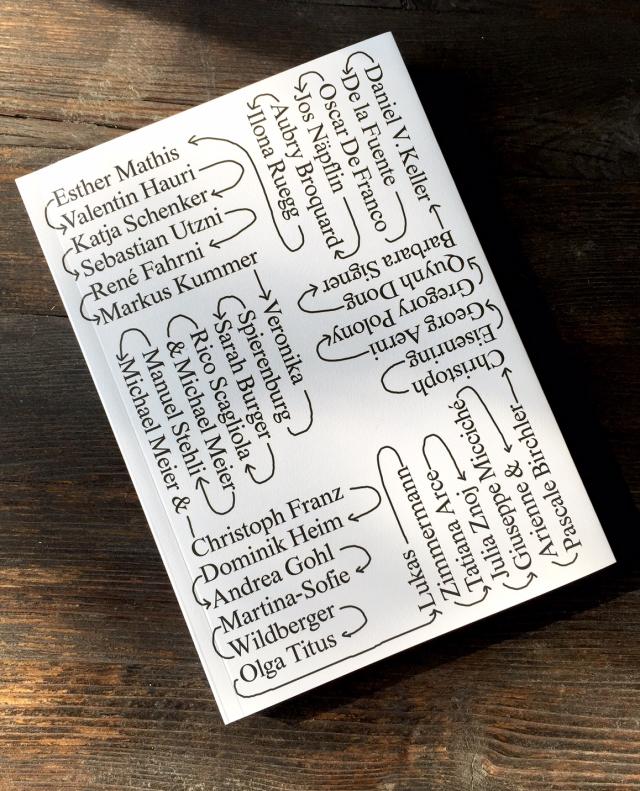 Esther Mathis
Valentin Hauri
Katja Schenker
Sebastian Utzni
René Fahrni
Markus Kummer
Veronika
Spierenburg
Sarah Burger
Rico Scagliola
& Michael Meier
Manuel Stehli
Michael Meier &
Christoph Franz
Dominik Heim
Andrea Gohl
Martina-Sofie
Wildberger
Olga Titus
Lukas
Zimmermann
Tatiana Arce
Julia Znoj
Giuseppe Micciché
Arienne &
Pascale Birchler
Christoph
Eisenring
Georg Aerni
Gregory Polony
Quynh Dong
Barbara Signer
Daniel V. Keller
De la Fuente
Oscar De Franco
Jos Näpflin
Aubry Broquard
Ilona Ruegg